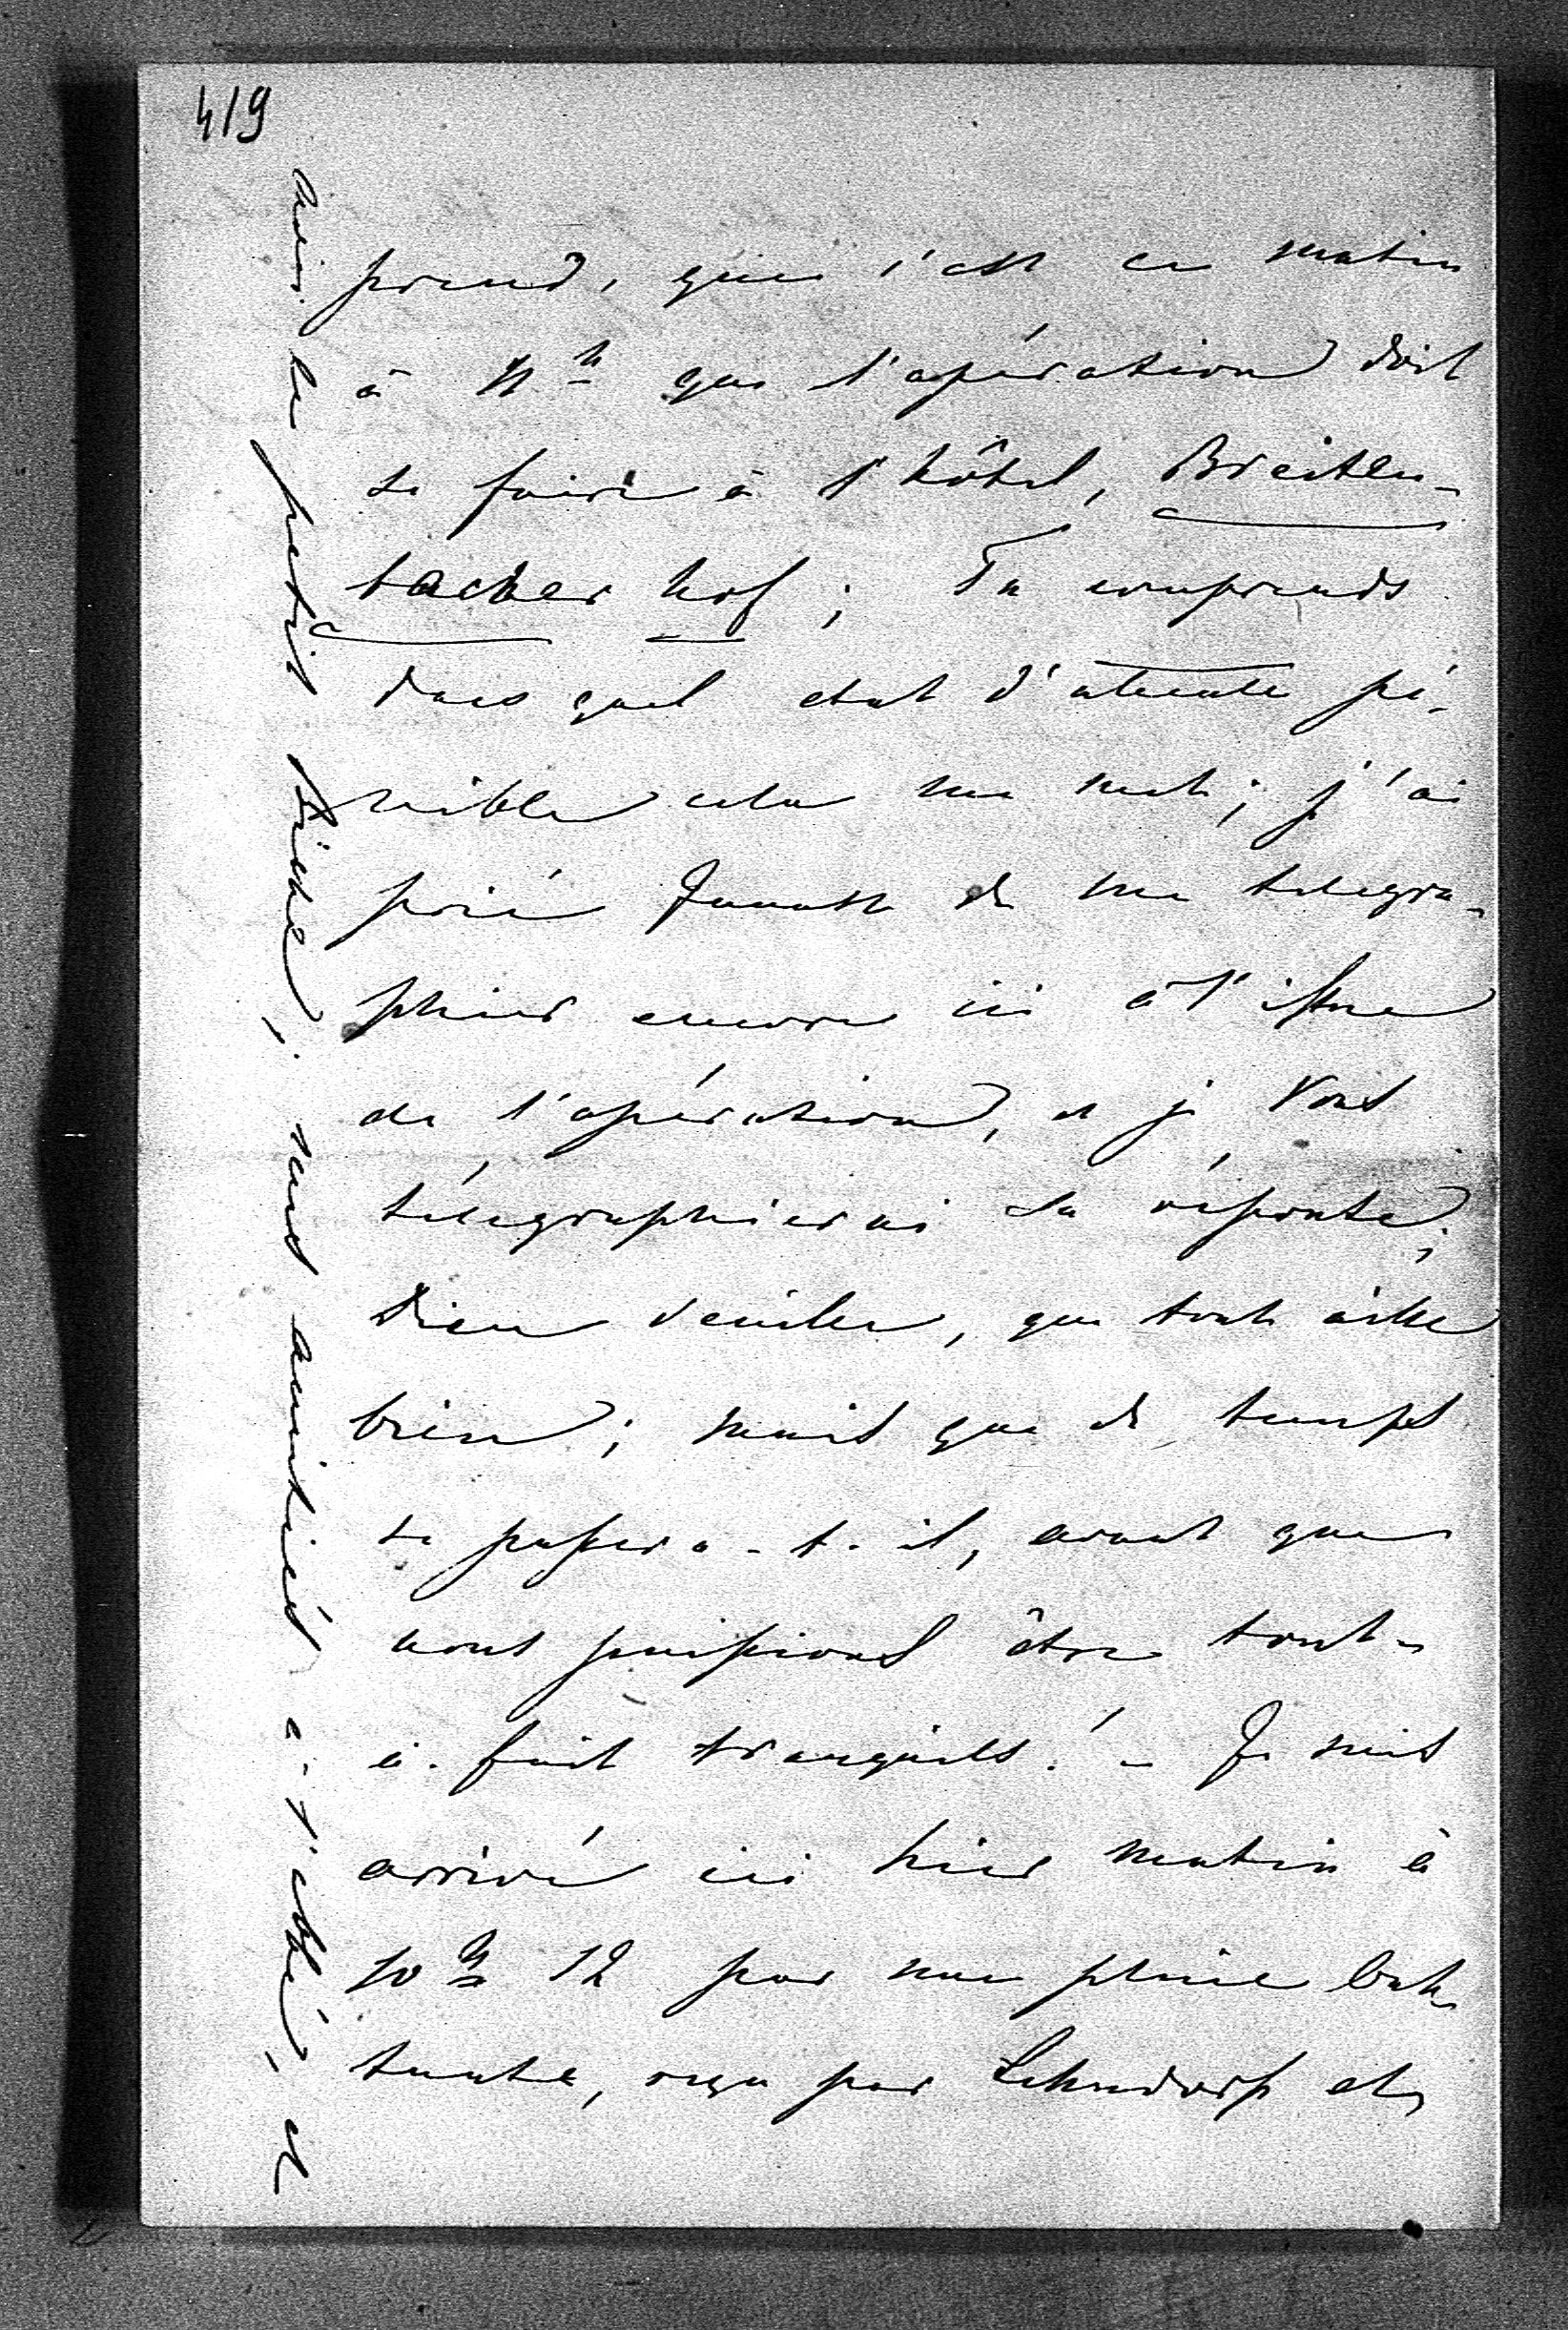 419
prend, que c'est ce matin
à 11 h que l'opération doit
se faire à l'hôtel, Breiten-
bacher hof; Tu comprends
dans quel etat d'attente pé-
nible cela me met; j'ai
prié de me telegra-
phier encore ici à l'issue
de l'opération, et je Vous
télégraphierai sa réponse;
Dieu veuille, que tout aille
bien; mais que de temps
se passera-t-il, avant que
nous puissions être tout-
à-fait tranquils! – Je suis
arrivé ici hier matin à
10 h 12 par une pluie bat-
tante, reçu par Lehndorf et
le petit ; nous amitiés à et